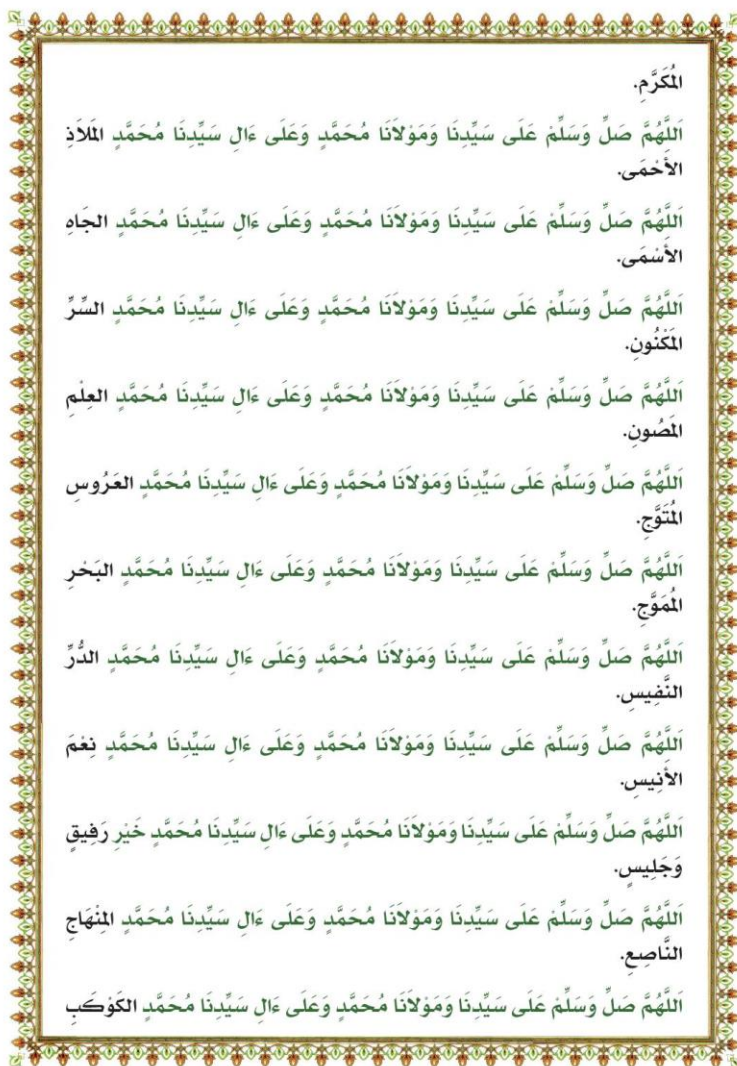 المُكَرَّمِ.
اَللَّهُمَّ صَلِّ وَسَلِّمْ عَلَى سَيِّدِنَا وَمَوْلاَنَا مُحَمَّدٍ وَعَلَى ءَالِ سَيِّدِنَا مُحَمَّدٍ المَلاَذِ
الأَحْمَى.
اَللَّهُمَّ صَلِّ وَسَلِّمْ عَلَى سَيِّدِنَا وَمَوْلاَنَا مُحَمَّدٍ وَعَلَى ءَالِ سَيِّدِنَا مُحَمَّدٍ الجَاهِ
الأَسْمَى.
اَللَّهُمَّ صَلِّ وَسَلِّمْ عَلَى سَيِّدِنَا وَمَوْلاَنَا مُحَمَّدٍ وَعَلَى ءَالِ سَيِّدِنَا مُحَمَّدٍ السِّرِّ
المَكْنُونِ.
اَللَّهُمَّ صَلِّ وَسَلِّمْ عَلَى سَيِّدِنَا وَمَوْلاَنَا مُحَمَّدٍ وَعَلَى ءَالِ سَيِّدِنَا مُحَمَّدٍ العِلْمِ
المَصُونِ.
اَللَّهُمَّ صَلِّ وَسَلِّمْ عَلَى سَيِّدِنَا وَمَوْلاَنَا مُحَمَّدٍ وَعَلَى ءَالِ سَيِّدِنَا مُحَمَّدٍ العَرُوسِ
المُتَوَّجِ.
اَللَّهُمَّ صَلِّ وَسَلِّمْ عَلَى سَيِّدِنَا وَمَوْلاَنَا مُحَمَّدٍ وَعَلَى ءَالِ سَيِّدِنَا مُحَمَّدٍ البَحْرِ
المُمَوَّجِ.
اَللَّهُمَّ صَلِّ وَسَلِّمْ عَلَى سَيِّدِنَا وَمَوْلاَنَا مُحَمَّدٍ وَعَلَى ءَالِ سَيِّدِنَا مُحَمَّدٍ الدُّرِّ
النَّفِيسِ.
اَللَّهُمَّ صَلِّ وَسَلِّمْ عَلَى سَيِّدِنَا وَمَوْلاَنَا مُحَمَّدٍ وَعَلَى ءَالِ سَيِّدِنَا مُحَمَّدٍ نِعْمَ
الأَنِيسِ.
اَللَّهُمَّ صَلِّ وَسَلِّمْ عَلَى سَيِّدِنَا وَمَوْلاَنَا مُحَمَّدٍ وَعَلَى ءَالِ سَيِّدِنَا مُحَمَّدٍ خَيْرِ رَفِيقٍ
وَجَلِيسٍ.
اَللَّهُمَّ صَلِّ وَسَلِّمْ عَلَى سَيِّدِنَا وَمَوْلاَنَا مُحَمَّدٍ وَعَلَى ءَالِ سَيِّدِنَا مُحَمَّدٍ المِنْهَاجِ
النَّاصِعِ.
اَللَّهُمَّ صَلِّ وَسَلِّمْ عَلَى سَيِّدِنَا وَمَوْلاَنَا مُحَمَّدٍ وَعَلَى ءَالِ سَيِّدِنَا مُحَمَّدٍ الكَوْكَبِ